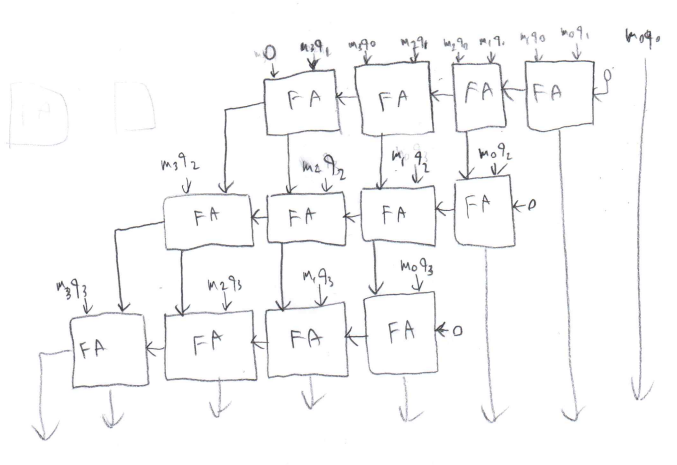 0 m3q1 m3q0 m2q1 m2q0 m1q1 m1q0 m0q1 m0q0
FA FA FA FA 0
m3q2 m2q2 m1q2 m0q2
FA FA FA FA 0
m3q3 m2q3 m1q3 m0q3
FA FA FA FA 0